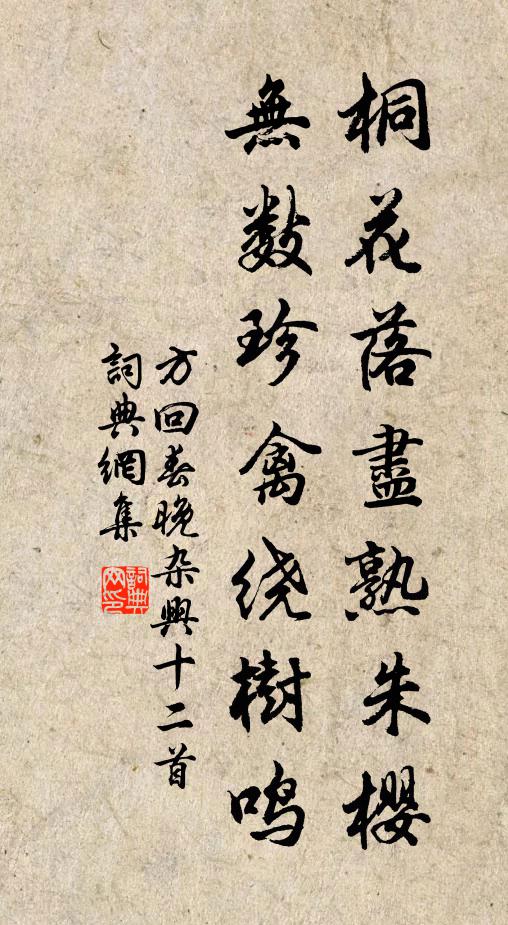 桐花落盡熟朱櫻
無数珍禽绕樹鸣
方回春晚杂興十二首
詞典網集
詞典网印